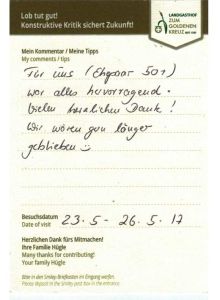 Lob tut gut!
Konstruktive Kritik sichert Zukunft!
LANDGASTHOF
ZUM
GOLDENEN
KREUZ
Mein Kommentar / Meine Tipps
My comments / tips
Für uns (Ehepaar 501)
war alles hervorragend.
Vielen herzlichen Dank!
Wir wären gern länger
geblieben
Besuchsdatum
Date of visit
23.5 - 26.5.17
Herzlichen Dank fürs Mitmachen!
Ihre Familie Hügle
Many thanks for contributing!
Your family Hügle
Bitte in den Smiley-Briefkasten im Eingang werfen.
Please drop in the Smiley post box in the entrance.